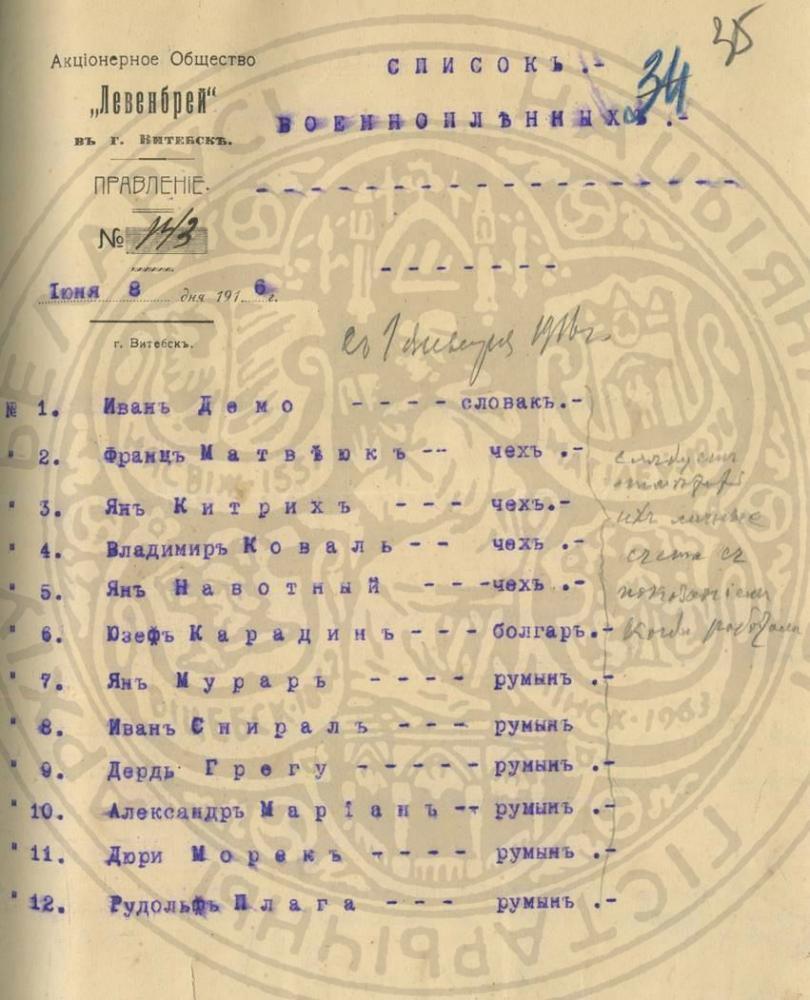 35
34
Акціонерное Общество
„Левенбрей“
въ г. Витебскѣ.
ПРАВЛЕНІЕ.
№ 143
Іюня 8 дня 1916 г.
г. Витебскъ.
СПИСОКЪ.-
ВОЕННОПЛѢННЫХЪ.-
- - - - - - - - - - - - - - - - - -
- - - - - - -
съ 1 января 1916 г.
№ 1. Иванъ Демо - - - - словакъ.-
" 2. Францъ Матвѣюкъ -- чехъ .-
" 3. Янъ Китрихъ - - - чехъ.-
" 4. Владимиръ Коваль - - чехъ .-
" 5. Янъ Навотный - - - чехъ .-
" 6. Юзефъ Карадинъ - - - болгаръ.-
" 7. Янъ Мураръ - - - - румынъ .-
" 8. Иванъ Сниралъ - - - румынъ
" 9. Дердь Грегу - - - - - румынъ .-
" 10. Александръ Маріанъ -- румынъ .-
" 11. Дюри Морекъ - - - - румынъ .-
" 12. Рудольфъ Плага - - - румынъ .-
ихъ личные
счета съ
показаніемъ
когда работали